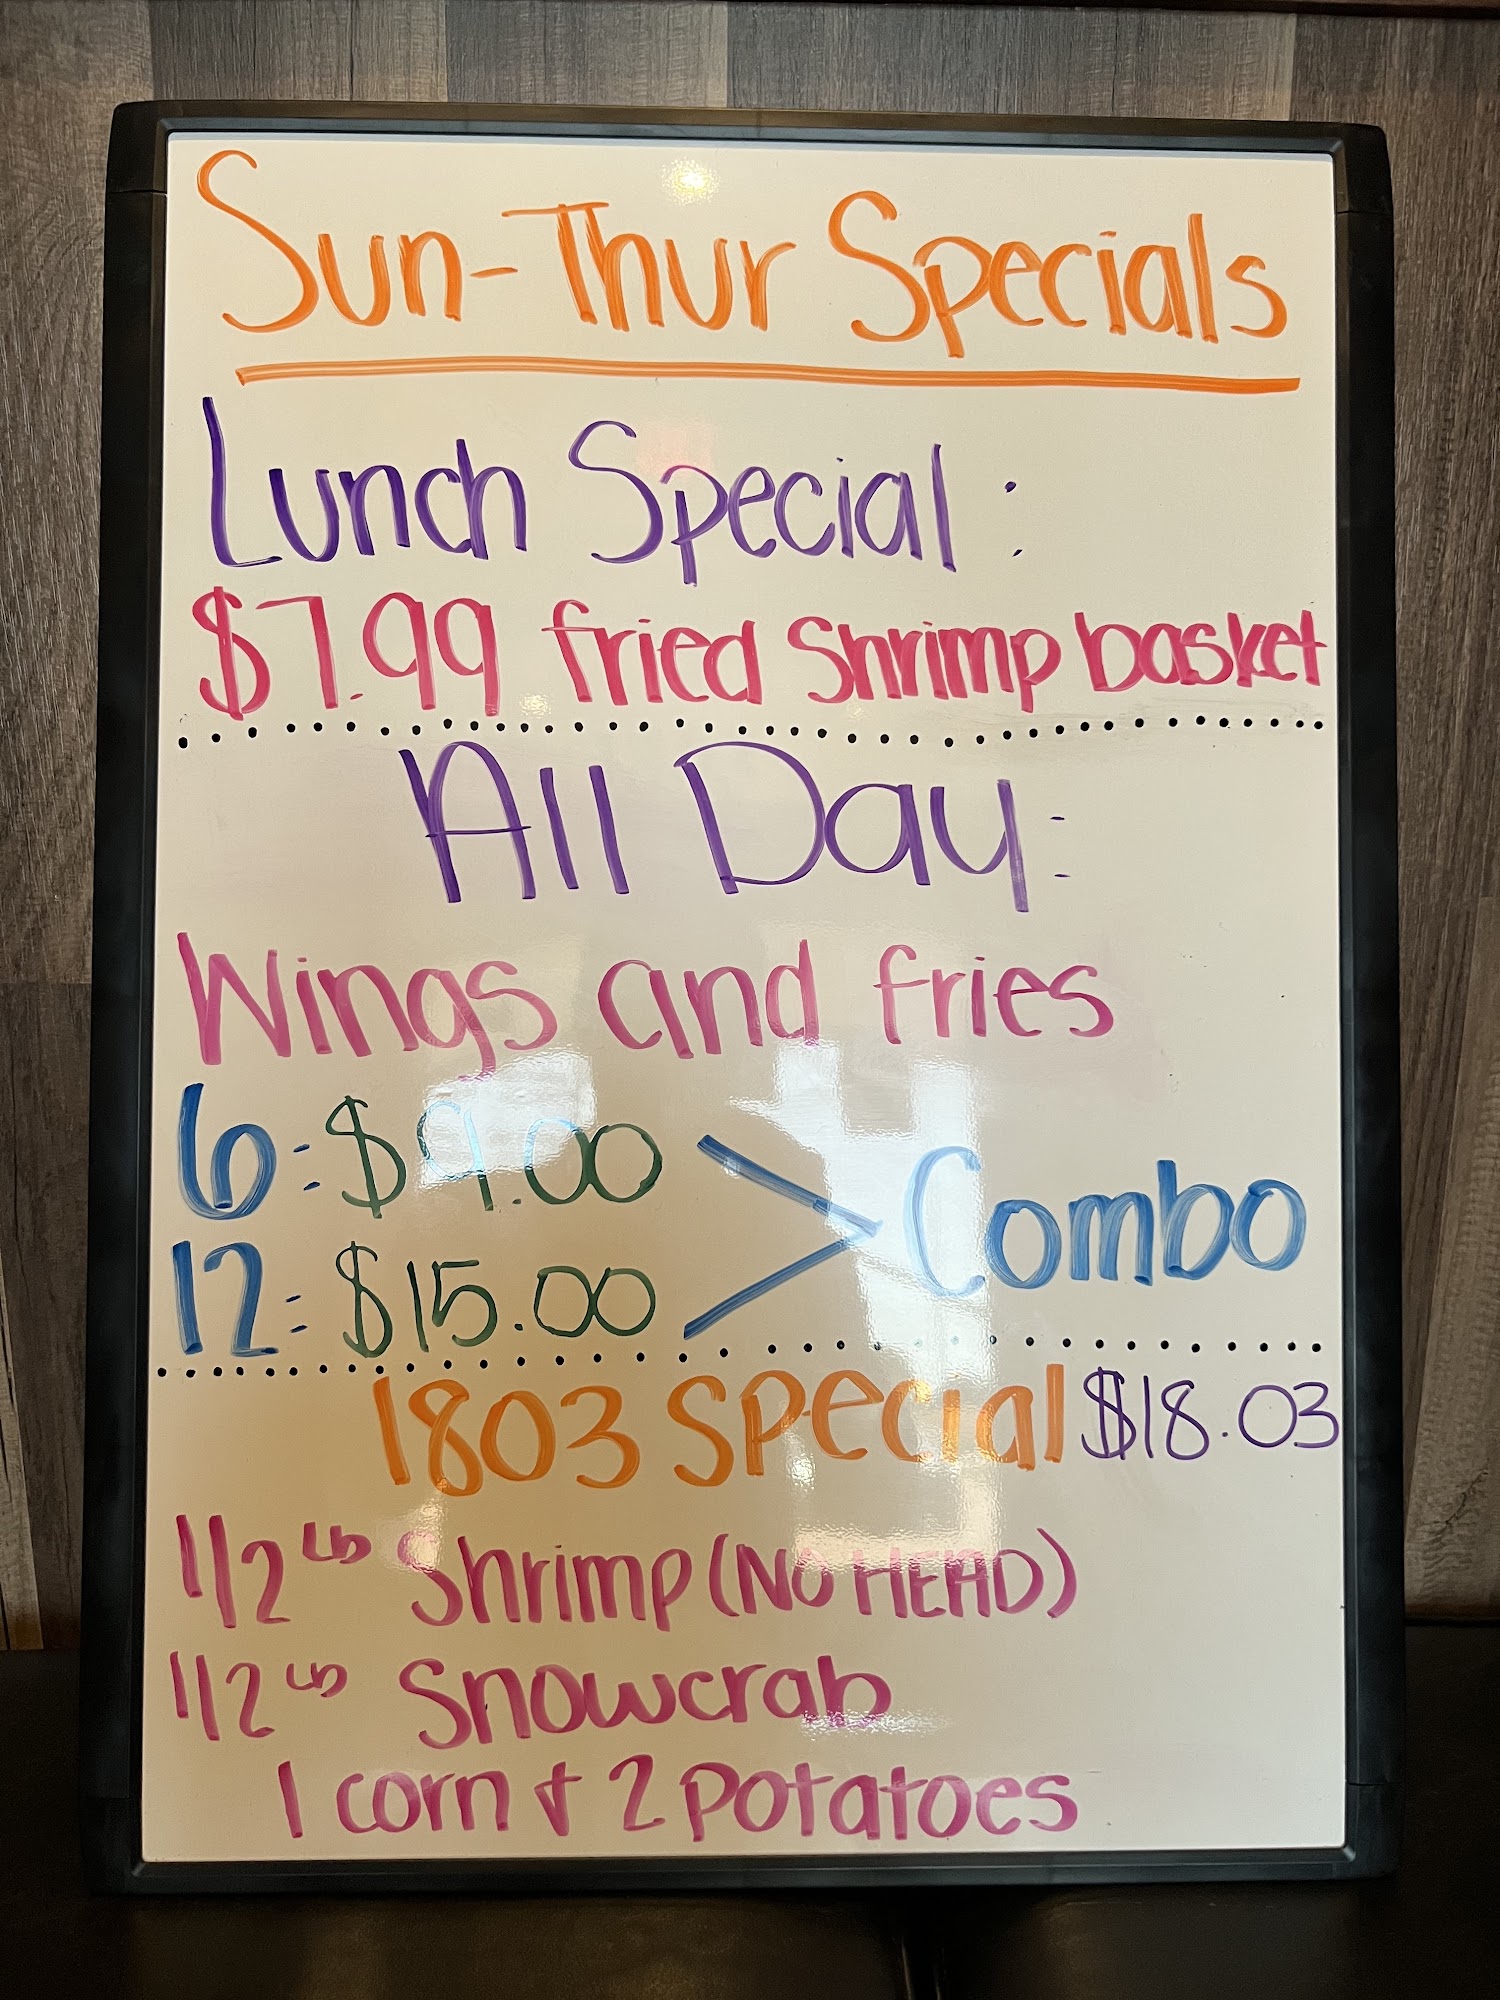 Sun-Thur Specials
Lunch Special:
$7.99 fried Shrimp basket
All Day:
Wings and fries
6: $9.00
12: $15.00
Combo
1803 Special $18.03
1/2 Lb Shrimp (NO HEAD)
1/2 Lb Snowcrab
1 corn & 2 Potatoes